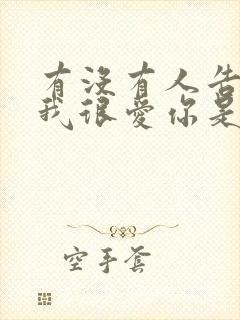 有没有人告
我很爱你是
空手套